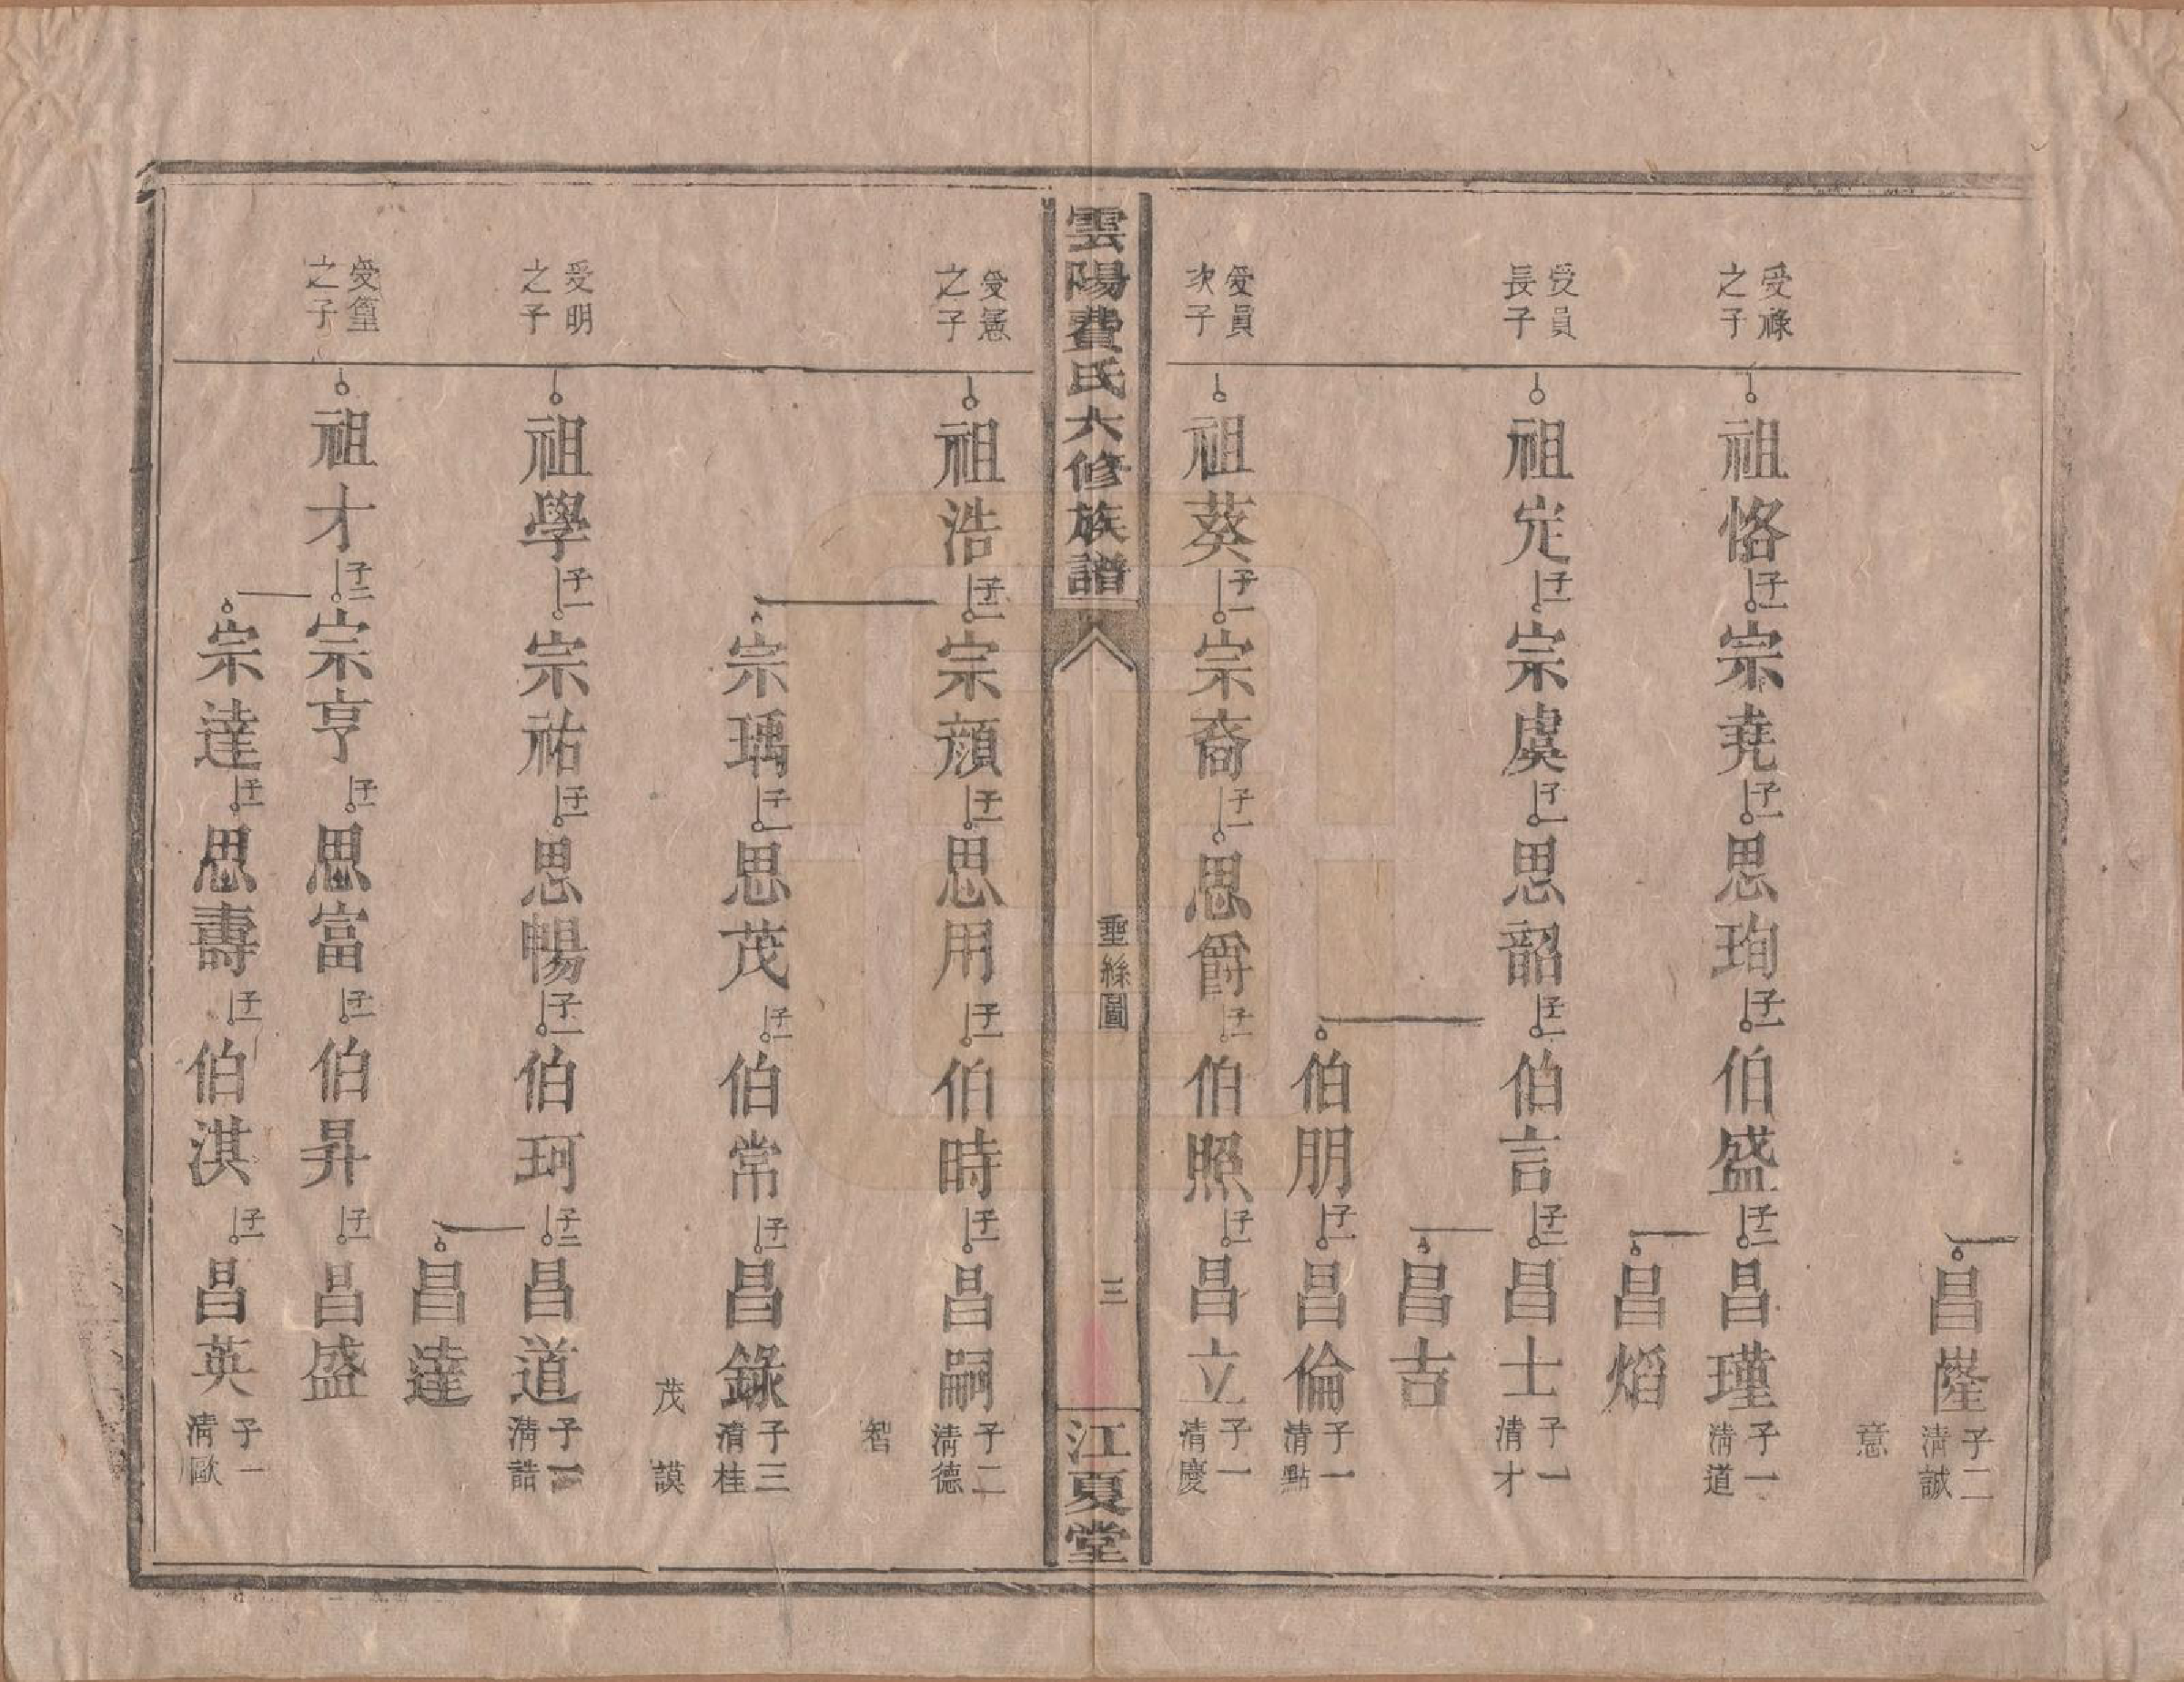 昌隆 子二 清誠
意
受祿之子 祖恪 子一 宗堯 子一 思珣 子一 伯盛 子二 昌瑾 子一 清道
昌熖
受員長子 祖定 子一 宗虞 子一 思韶 子二 伯言 子二 昌士 子一 清才
昌吉
伯朋 子一 昌倫 子一 清點
受員次子 祖葵 子一 宗裔 子一 思爵 子一 伯照 子一 昌立 子一 清慶
雲陽費氏六修族譜 垂絲圖 三 江夏堂
受憲之子 祖浩 子二 宗顏 子一 思用 子一 伯時 子一 昌嗣 子二 清德
智
宗瑀 子一 思茂 子一 伯常 子一 昌錄 子三 清桂
茂 謨
受明之子 祖學 子一 宗祐 子一 思暢 子一 伯珂 子二 昌道 子一 清誥
昌達
受篁之子 祖才 子二 宗亨 子一 思富 子一 伯昇 子一 昌盛
宗達 子一 思壽 子一 伯淇 子一 昌英 子一 清歐